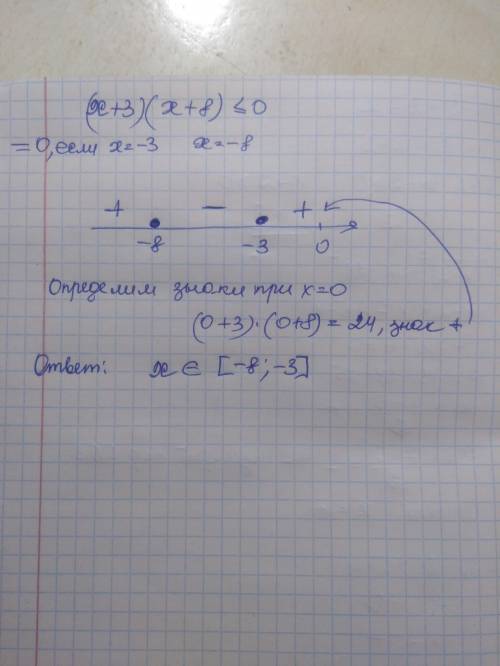 (x+3)(x+8)≤0
=0, если x=-3 x=-8
+ − +
-8 -3 0
Определим знаки при x=0
(0+3)·(0+8)=24, знак +
Ответ: x∈ [-8;-3]